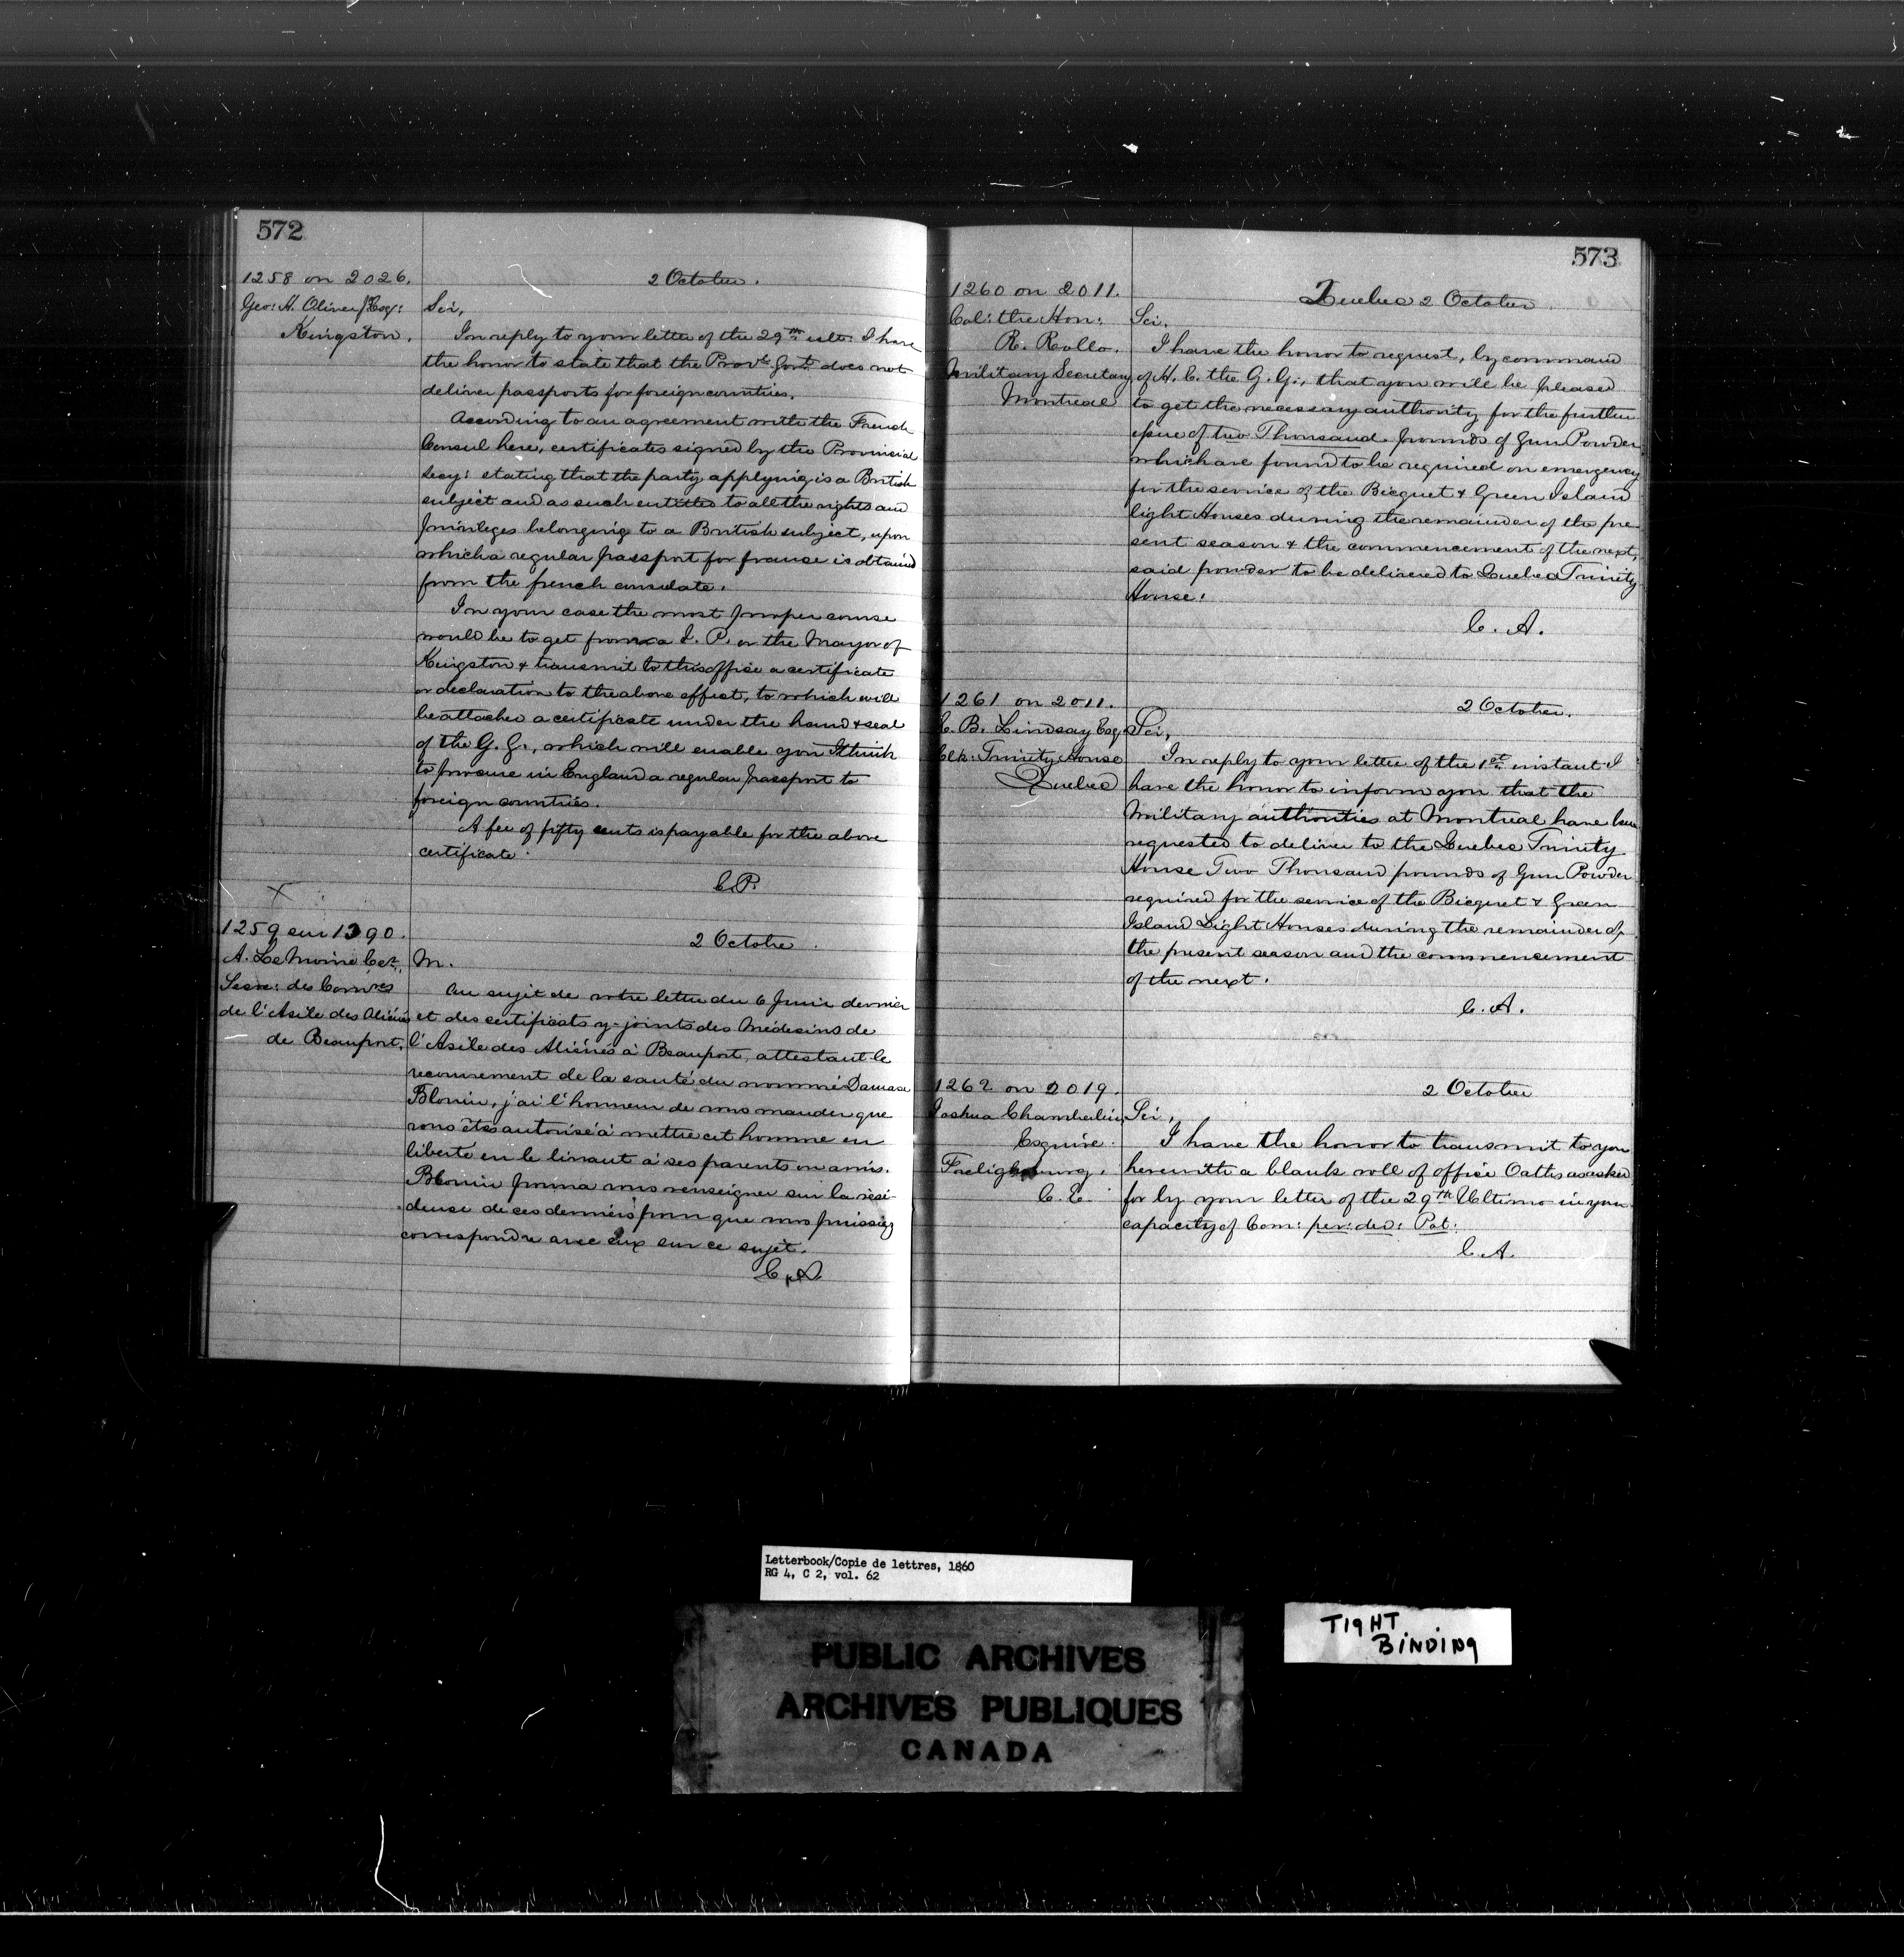 572
1258 on 2026.
Geo: H. Oliver Esq:
Kingston.
2 October.
Sir,
In reply to your letter of the 29th ulto: I have
the honor to state that the Provle Govt: does not
deliver passports for foreign countries.
According to an agreement with the French
Consul here, certificates signed by the Provincial
Secy: stating that the party applying is a British
subject and as such entitled to all the rights and
privileges belonging to a British subject, upon
which a regular passport for france is obtained
from the french consulate.
In your case the most proper course
would be to get from a J. P. or the Mayor of
Kingston & transmit to this office a certificate
or declaration to the above effect, to which will
be attached a certificate under the hand & seal
of the G. G., which will enable you I think
to procure in England a regular passport to
foreign countries.
A fee of fifty cents is payable for the above
certificate.
C.P.
X
1259 sur 1390.
A. LeMoine Ecr
Secre: des Comres
de l'Asile des Aliénés
de Beauport.
2 Octobre.
M.
Au sujet de votre lettre du 6 Juin dernier
et des certificats y-joints des Médecins de
l'Asile des Aliénés à Beauport, attestant le
recouvrement de la santé du nommé Damase
Blouin, j'ai l'honneur de vous mander que
vous êtes autorisé à mettre cet homme en
liberté en le livrant à ses parents ou amis.
Blouin pourra vous renseigner sur la rési-
dence de ces derniers pour que vous puissiez
correspondre avec eux sur ce sujet.
C. A.
573
1260 on 2011.
Col: the Hon:
R. Rollo.
Military Secretary
Montreal
Quebec 2 October.
Sir,
I have the honor to request, by command
of H. E. the G. G., that you will be pleased
to get the necessary authority for the further
issue of two Thousand pounds of Gun Powder
which are found to be required on emergency
for the service of the Bicquet & Green Island
light Houses during the remainder of the pre
sent season & the commencement of the next,
said powder to be delivered to Quebec Trinity
House.
C. A.
1261 on 2011.
E. B. Lindsay Esq
Clk: Trinity House
Quebec
2 October.
Sir,
In reply to your letter of the 1st instant I
have the honor to inform you that the
Military authorities at Montreal have been
requested to deliver to the Quebec Trinity
House Two Thousand pounds of Gun Powder
required for the service of the Bicquet & Green
Island Light Houses during the remainder of
the present season and the commencement
of the next.
C. A.
1262 on 2019.
Joshua Chamberlin
Esquire.
Freligsburg.
C. E.
2 October
Sir,
I have the honor to transmit to you
herewith a blank roll of office Oaths as asked
for by your letter of the 29th Ultimo in your
capacity of Com: per: ded: Pot:
C. A.
Letterbook/Copie de lettres, 1860
RG 4, C 2, vol. 62
PUBLIC ARCHIVES
ARCHIVES PUBLIQUES
CANADA
TIGHT
BINDING